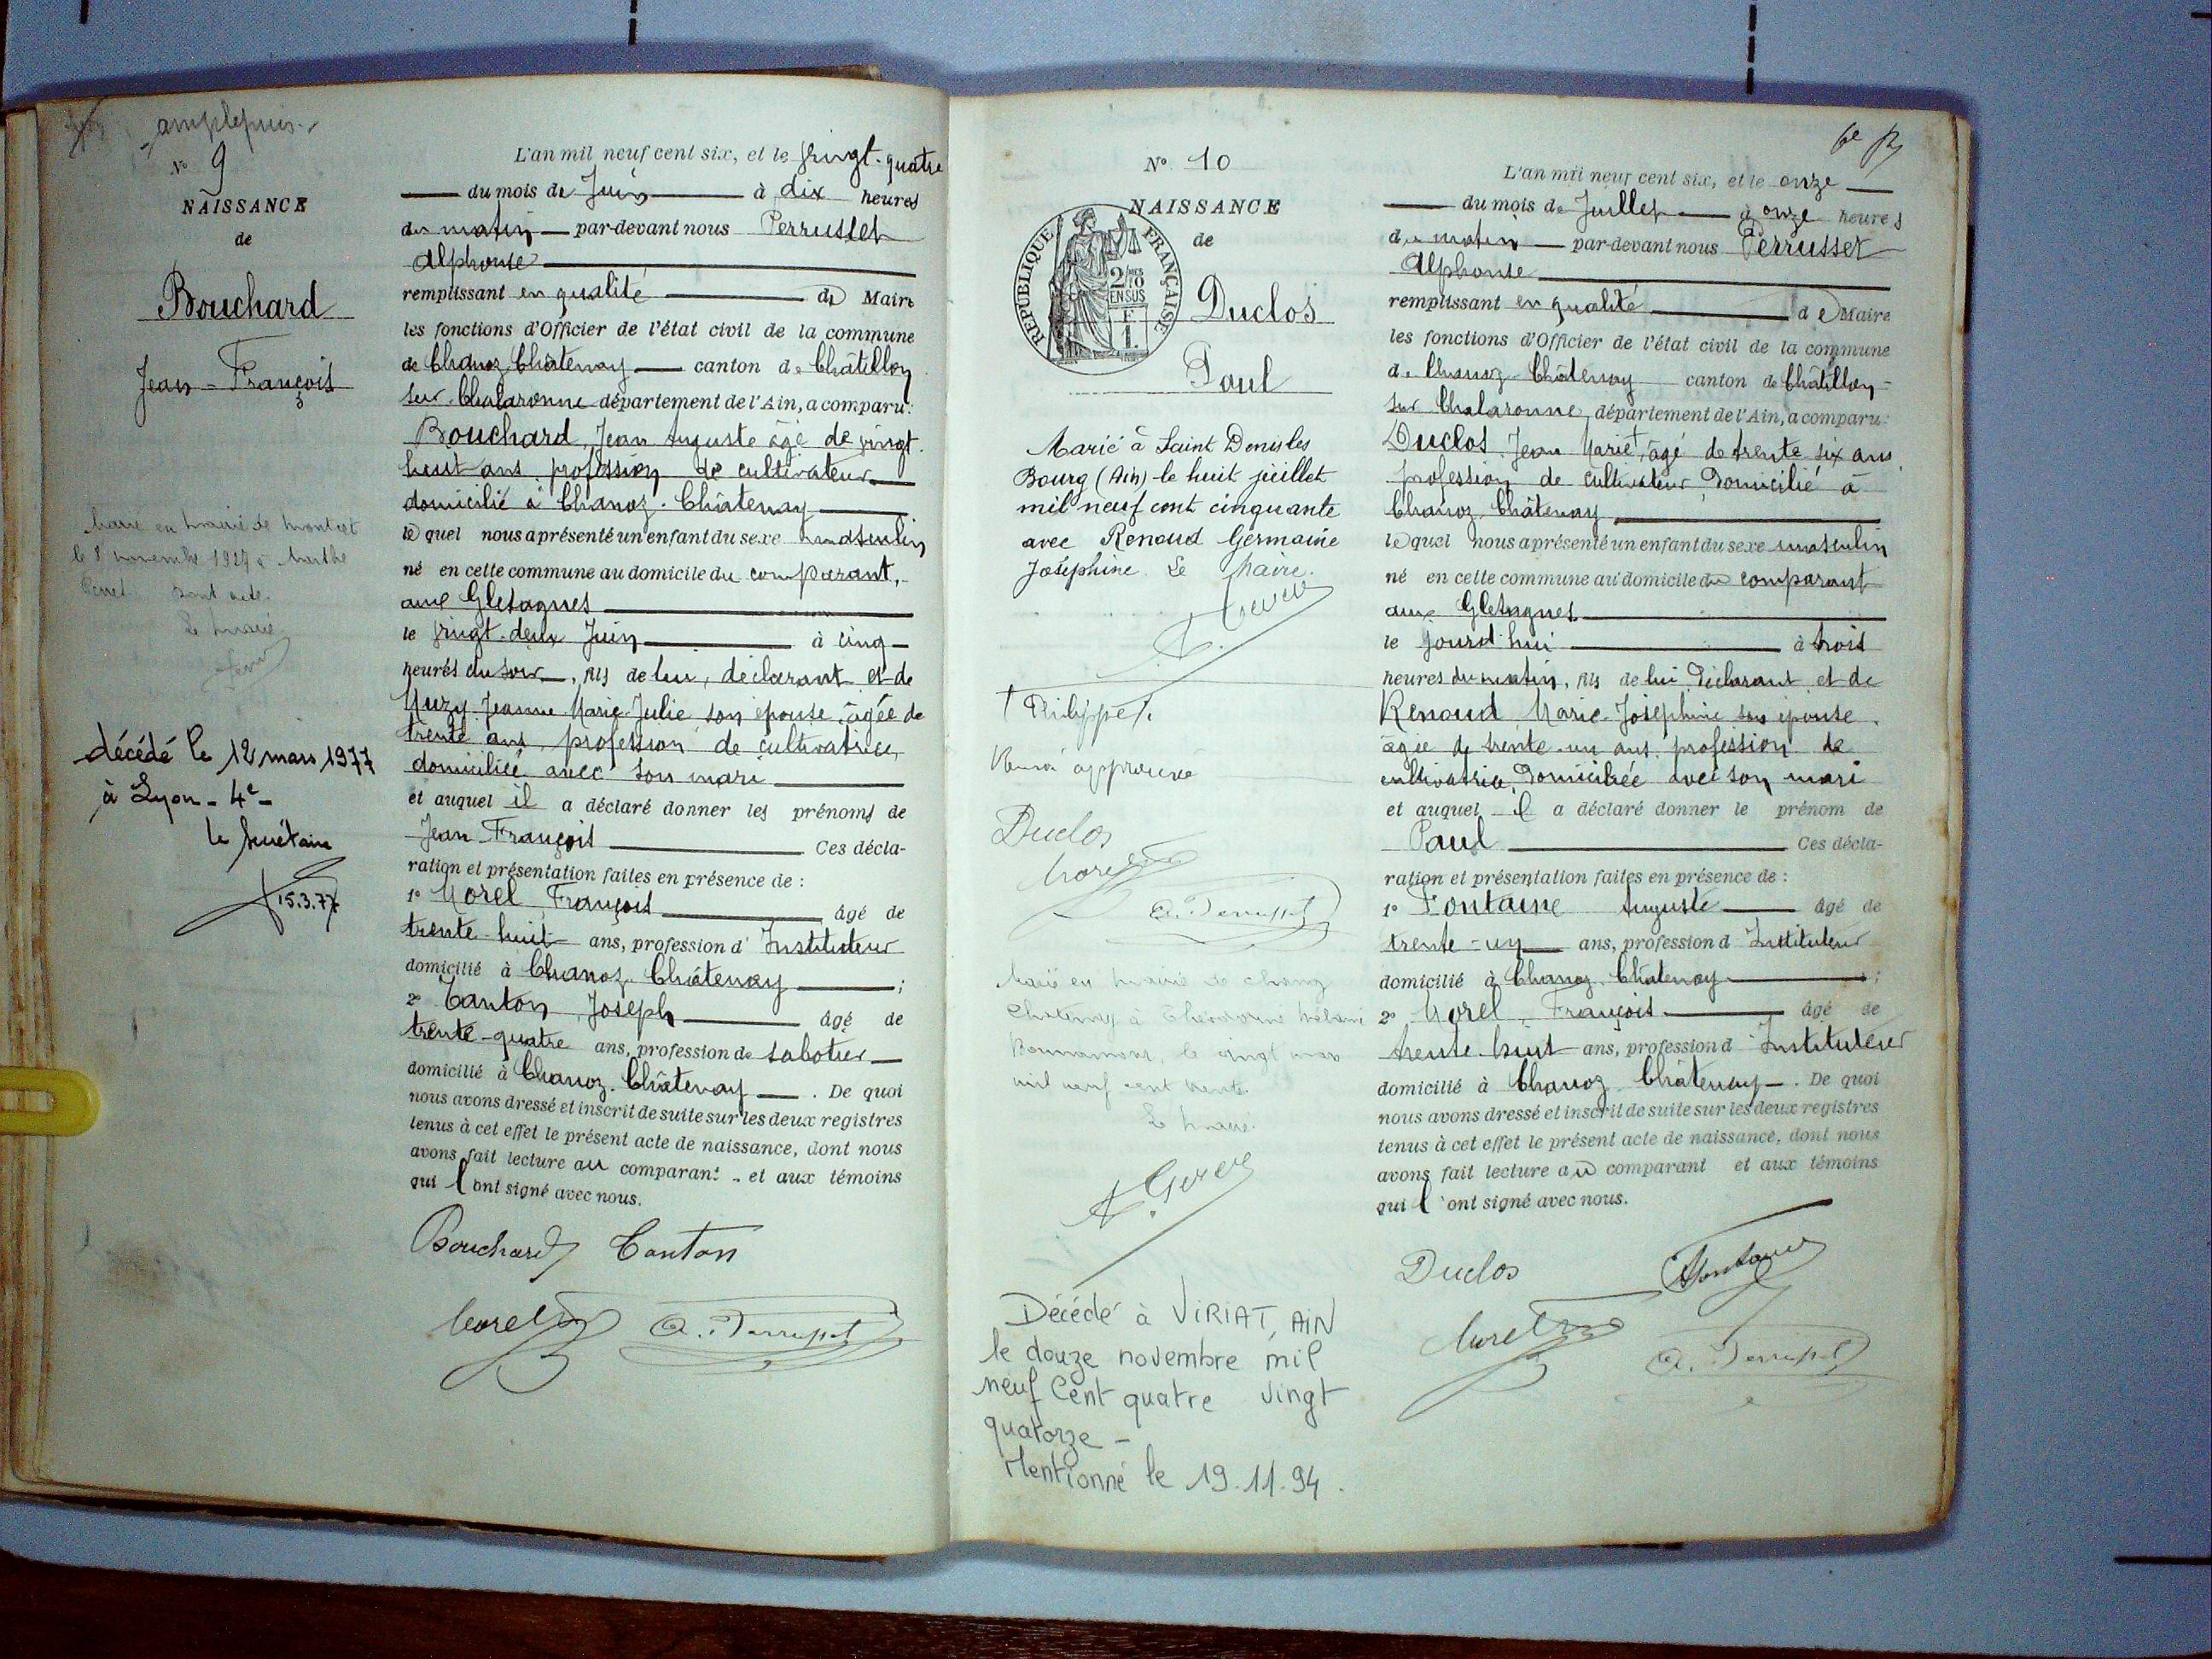 amplepuis
N° 9
NAISSANCE
de
Bouchard
Jean-François
Marié en mairie de Montcet
le 8 novembre 1924 à Marthe
dont acte.
Le maire
décédé le 12 mars 1977
à Lyon - 4e -
le Secrétaire
15.3.77
L'an mil neuf cent six, et le vingt-quatre
du mois de Juin à dix heures
du matin par-devant nous Perrusset
Alphonse
remplissant en qualité de Maire
les fonctions d'Officier de l'état civil de la commune
de Chanoz-Châtenay canton de Châtillon
sur-Chalaronne département de l'Ain, a comparu:
Bouchard, Jean Auguste âgé de vingt
huit ans, profession de cultivateur
domicilié à Chanoz-Châtenay
lequel nous a présenté un enfant du sexe masculin
né en cette commune au domicile du comparant,
aux Gletagnes
le vingt-deux Juin à cinq
heures du soir, fils de lui, déclarant et de
Muzy Jeanne Marie Julie son épouse, âgée de
trente ans, profession de cultivatrice,
domiciliée avec son mari
et auquel il a déclaré donner les prénoms de
Jean François Ces décla-
ration et présentation faites en présence de :
1° Morel François âgé de
trente-huit ans, profession d'Instituteur
domicilié à Chanoz-Châtenay ;
2° Canton, Joseph âgé de
trente-quatre ans, profession de sabotier
domicilié à Chanoz-Châtenay . De quoi
nous avons dressé et inscrit de suite sur les deux registres
tenus à cet effet le présent acte de naissance, dont nous
avons fait lecture au comparant et aux témoins
qui l'ont signé avec nous.
Bouchard Canton
Morel A. Perrusset
N° 10
NAISSANCE
de
RÉPUBLIQUE FRANÇAISE
2/10
EN SUS
Duclos
Paul
Marié à Saint Denis les
Bourg (Ain) le huit juillet
mil neuf cent cinquante
avec Renoud Germaine
Joséphine. Le Maire.
+ Philippe.
Renvoi approuvé
Duclos
Morel
A. Perrusset
Marié en mairie de Chanoz
Châtenay à
le vingt
mil neuf cent trente.
Le maire.
Décédé à VIRIAT, AIN
le douze novembre mil
neuf Cent quatre vingt
quatorze -
Mentionné le 19.11.94.
L'an mil neuf cent six, et le onze
du mois de Juillet à onze heures
du matin par-devant nous Perrusset
Alphonse
remplissant en qualité de Maire
les fonctions d'Officier de l'état civil de la commune
de Chanoz-Châtenay canton de Châtillon-
sur Chalaronne, département de l'Ain, a comparu:
Duclos Jean Marie +, âgé de trente six ans,
profession de cultivateur domicilié à
Chanoz-Châtenay
lequel nous a présenté un enfant du sexe masculin
né en cette commune au domicile du comparant
aux Gletagnes
le jourd'hui à trois
heures du matin, fils de lui déclarant et de
Renoud Marie-Joséphine son épouse,
âgée de trente-un ans, profession de
cultivatrice, domiciliée avec son mari
et auquel il a déclaré donner le prénom de
Paul Ces décla-
ration et présentation faites en présence de :
1° Fontaine Auguste âgé de
trente-un ans, profession d Instituteur
domicilié à Chanoz-Châtenay ;
2° Morel, François âgé de
trente-huit ans, profession d Instituteur
domicilié à Chanoz-Châtenay . De quoi
nous avons dressé et inscrit de suite sur les deux registres
tenus à cet effet le présent acte de naissance, dont nous
avons fait lecture au comparant et aux témoins
qui l'ont signé avec nous.
Duclos Fontaine
Morel A. Perrusset